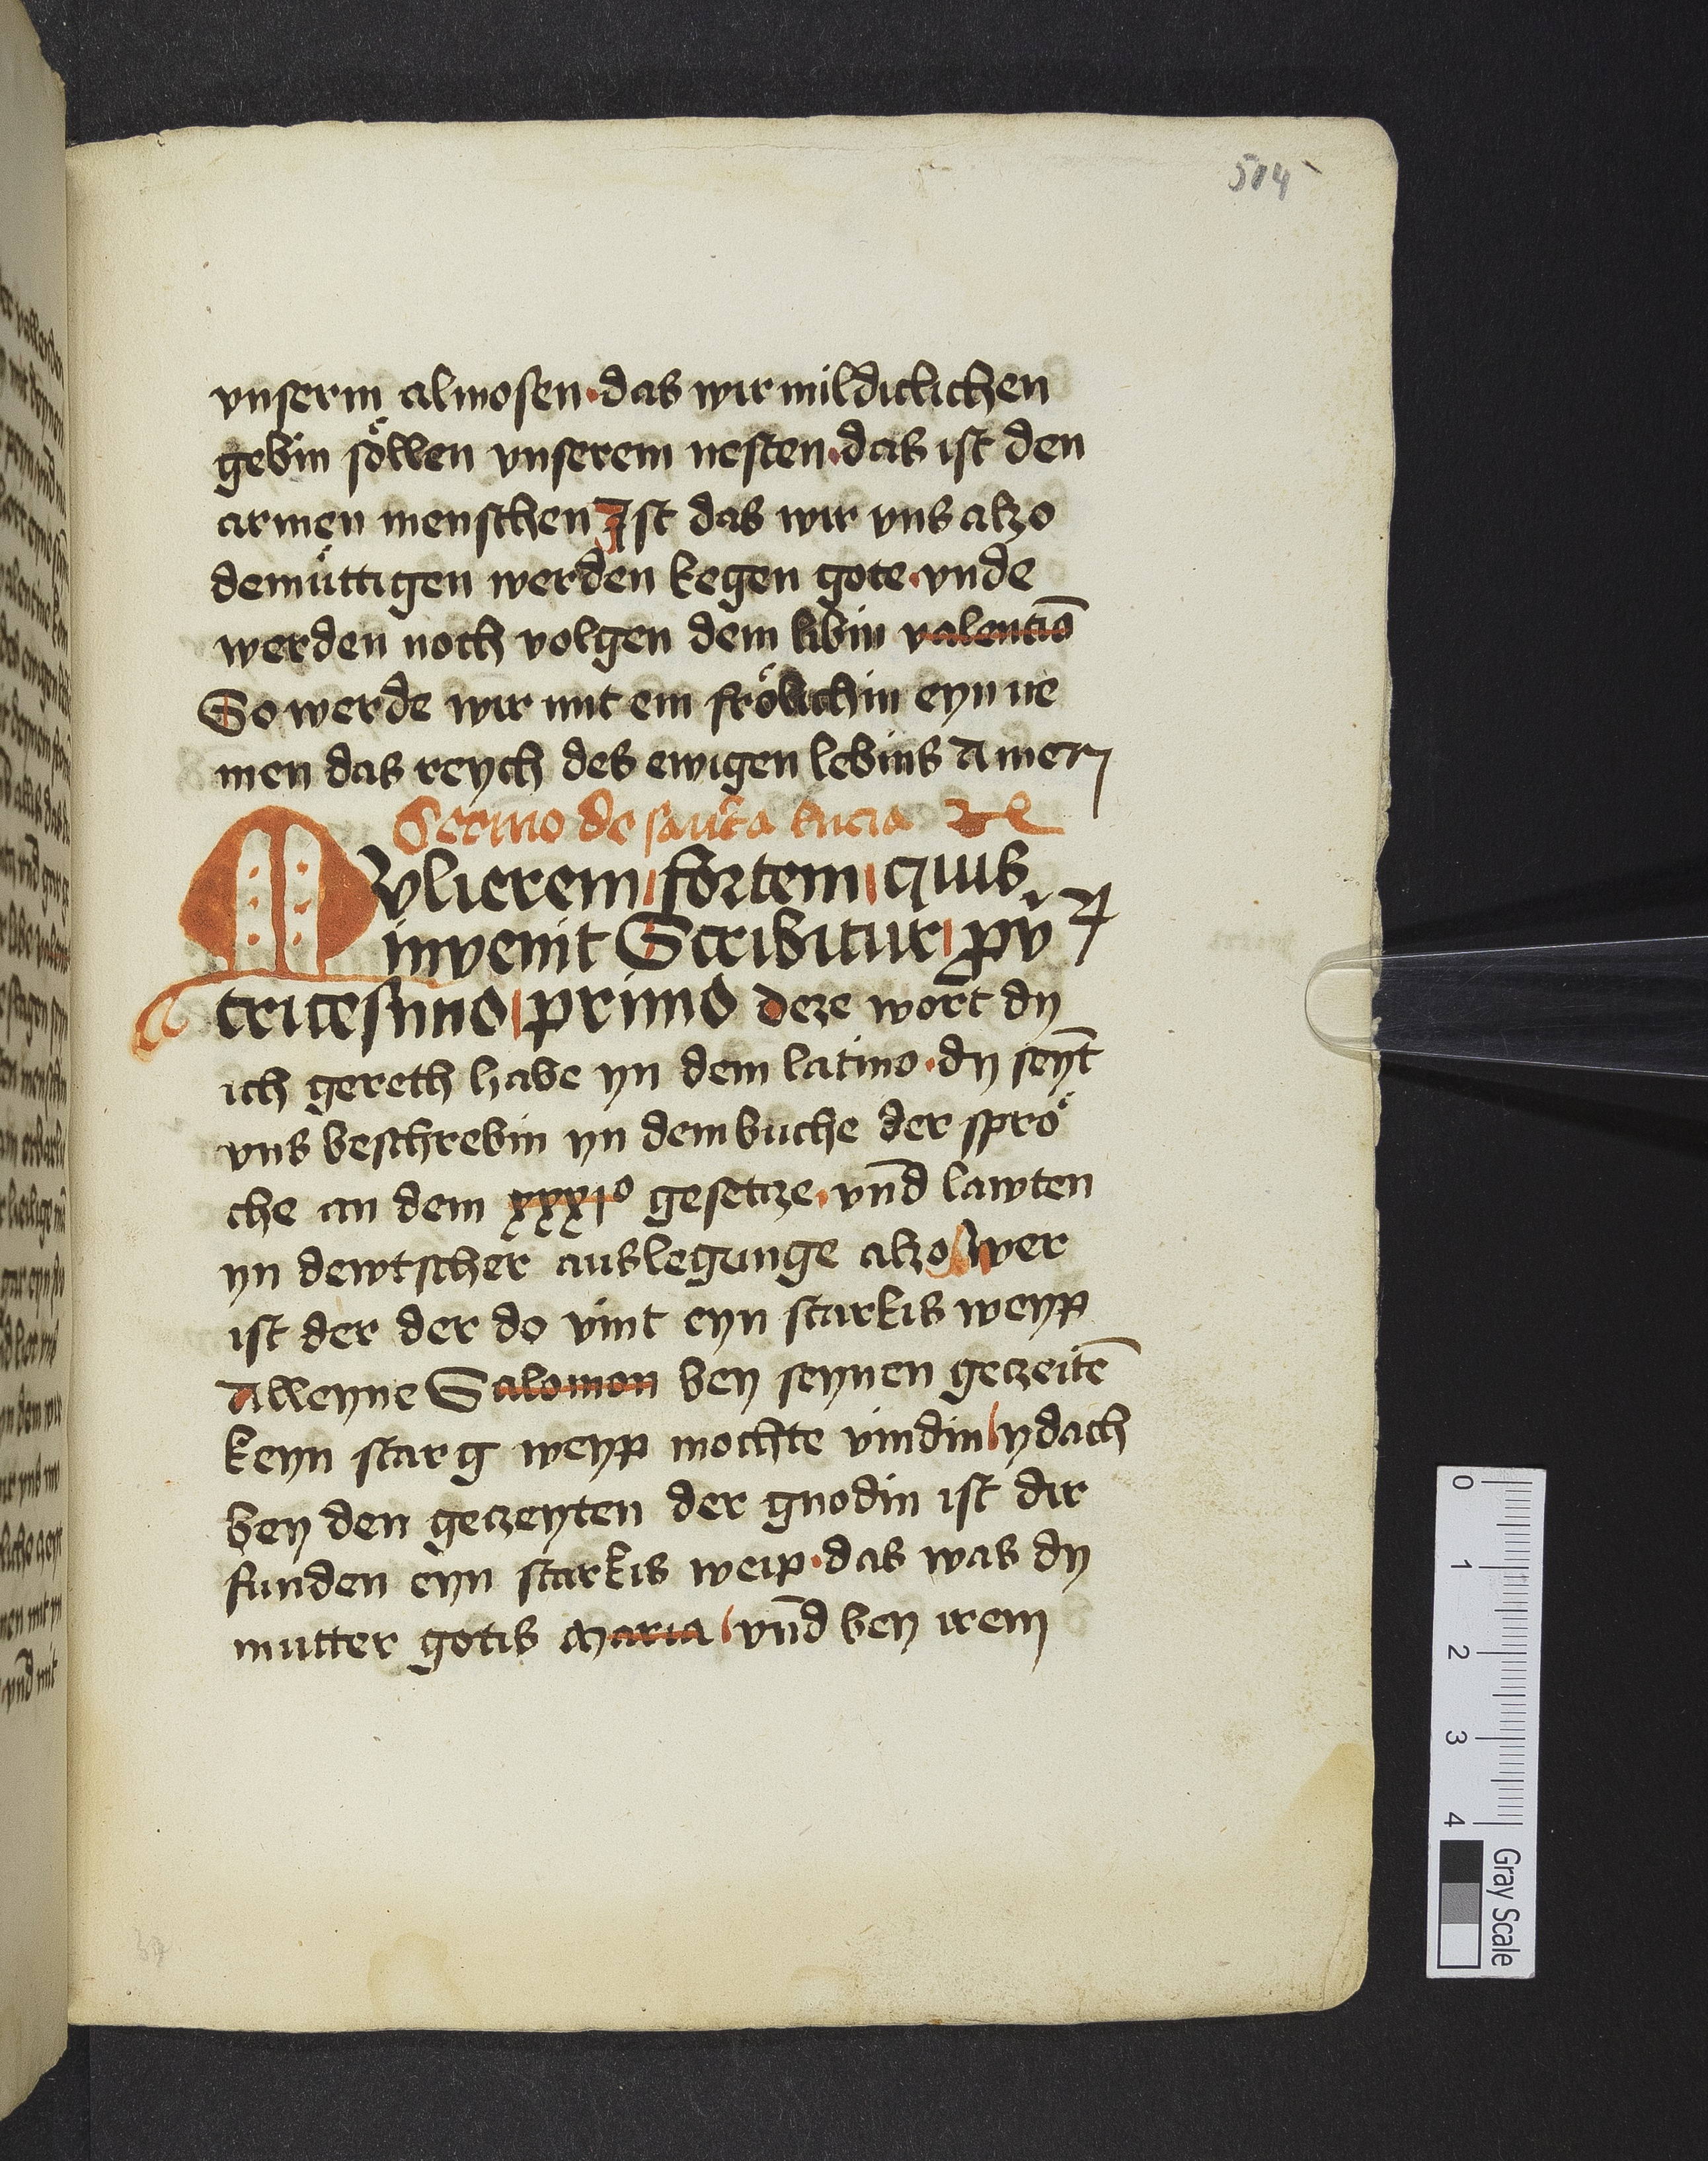 514
vnserm almosen · das wir mildiclichen
gebin söllen vnserem nesten · das ist den
armen menschen Ist das wir vns alzo
demüttigen werden kegen gote · vnde
werden noch volgen dem libin valentio᷑
So werde wir mit em frölichin eyn ne
men das reych des ewigen lebins Amen
Sermo de sancta lucia
Mvlierem fortem quis
invenit Scribitur pv̓ꝝ
tricesimo primo Deze wort dy
ich gereth habe yn dem latino · dy seyt̄
vns beschrebin yn dem buche der sprö
che an dem xxxio gesetcze · vn̄d lawten
yn dewtscher auslegunge alzo wer
ist der der do vint eyn starkis weyp
Alleyne Salomon bey seynen geczeitē
keyn starg weyp mochte vindin ydach
bey den geczeyten der gnodin ist dir
funden eyn starkis weip · das was dy
mutter gotis Maria vn̄d bey irem
0 1 2 3 4 Gray Scale